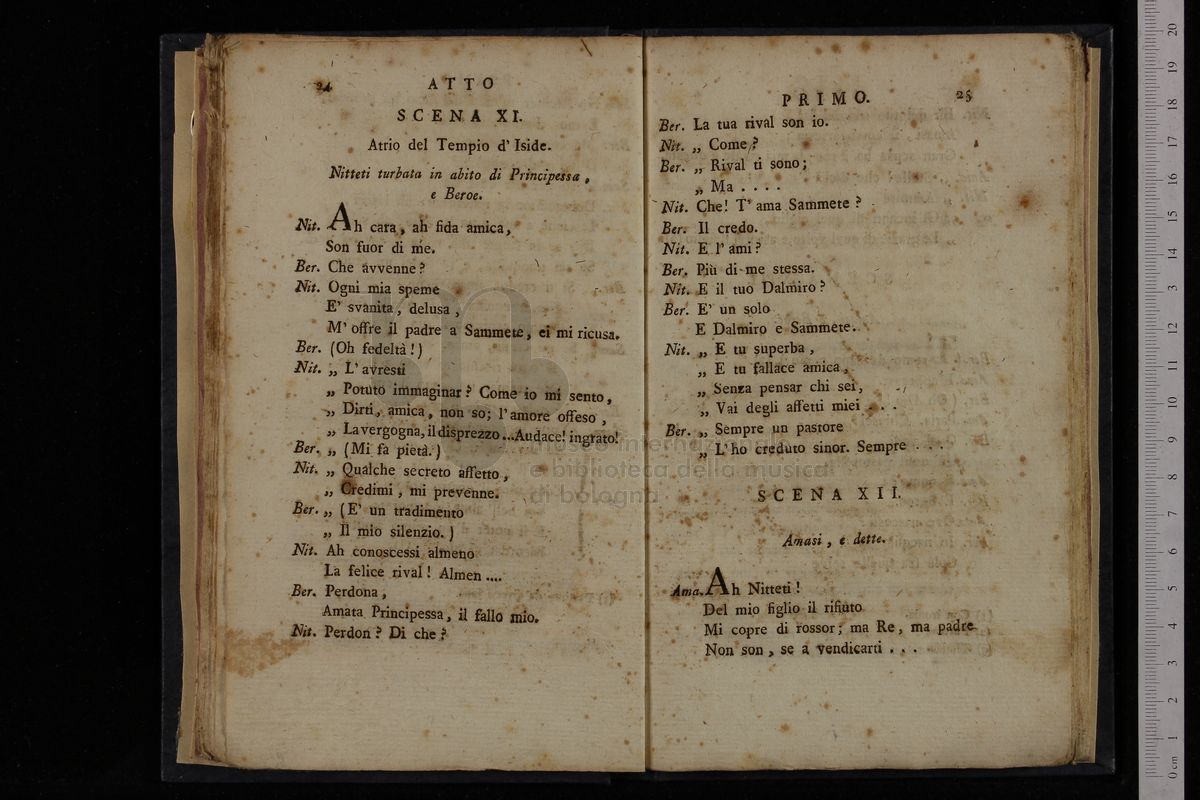 24
ATTO
SCENA XI.
Atrio del Tempio d' Iside.
Nitteti turbata in abito di Principessa,
e Beroe.
Nit. Ah cara, ah fida amica,
Son fuor di me.
Ber. Che avvenne?
Nit. Ogni mia speme
E' svanita, delusa,
M' offre il padre a Sammete, ei mi ricusa.
Ber. (Oh fedeltà!)
Nit. „ L' avresti
„ Potuto immaginar? Come io mi sento,
„ Dirti, amica, non so; l'amore offeso,
„ La vergogna, il disprezzo... Audace! ingrato!
Ber. „ (Mi fa pietà.)
Nit. „ Qualche secreto affetto,
„ Credimi, mi prevenne.
Ber. „ (E' un tradimento
„ Il mio silenzio.)
Nit. Ah conoscessi almeno
La felice rival! Almen ....
Ber. Perdona,
Amata Principessa, il fallo mio.
Nit. Perdon? Di che?
PRIMO.
25
Ber. La tua rival son io.
Nit. „ Come?
Ber. „ Rival ti sono;
„ Ma . . . .
Nit. Che! T' ama Sammete?
Ber. Il credo.
Nit. E l' ami?
Ber. Più di me stessa.
Nit. E il tuo Dalmiro?
Ber. E' un solo
E Dalmiro e Sammete.
Nit. „ E tu superba,
„ E tu fallace amica,
„ Senza pensar chi sei,
„ Vai degli affetti miei . . .
Ber. „ Sempre un pastore
„ L' ho creduto sinor. Sempre . . .
SCENA XII.
Amasi, e dette.
Ama. Ah Nitteti!
Del mio figlio il rifiuto
Mi copre di rossor; ma Re, ma padre
Non son, se a vendicarti . . .
museo internazionale
e biblioteca della musica
di bologna
20
19
18
17
16
15
14
13
12
11
10
9
8
7
6
5
4
3
2
1
0 cm